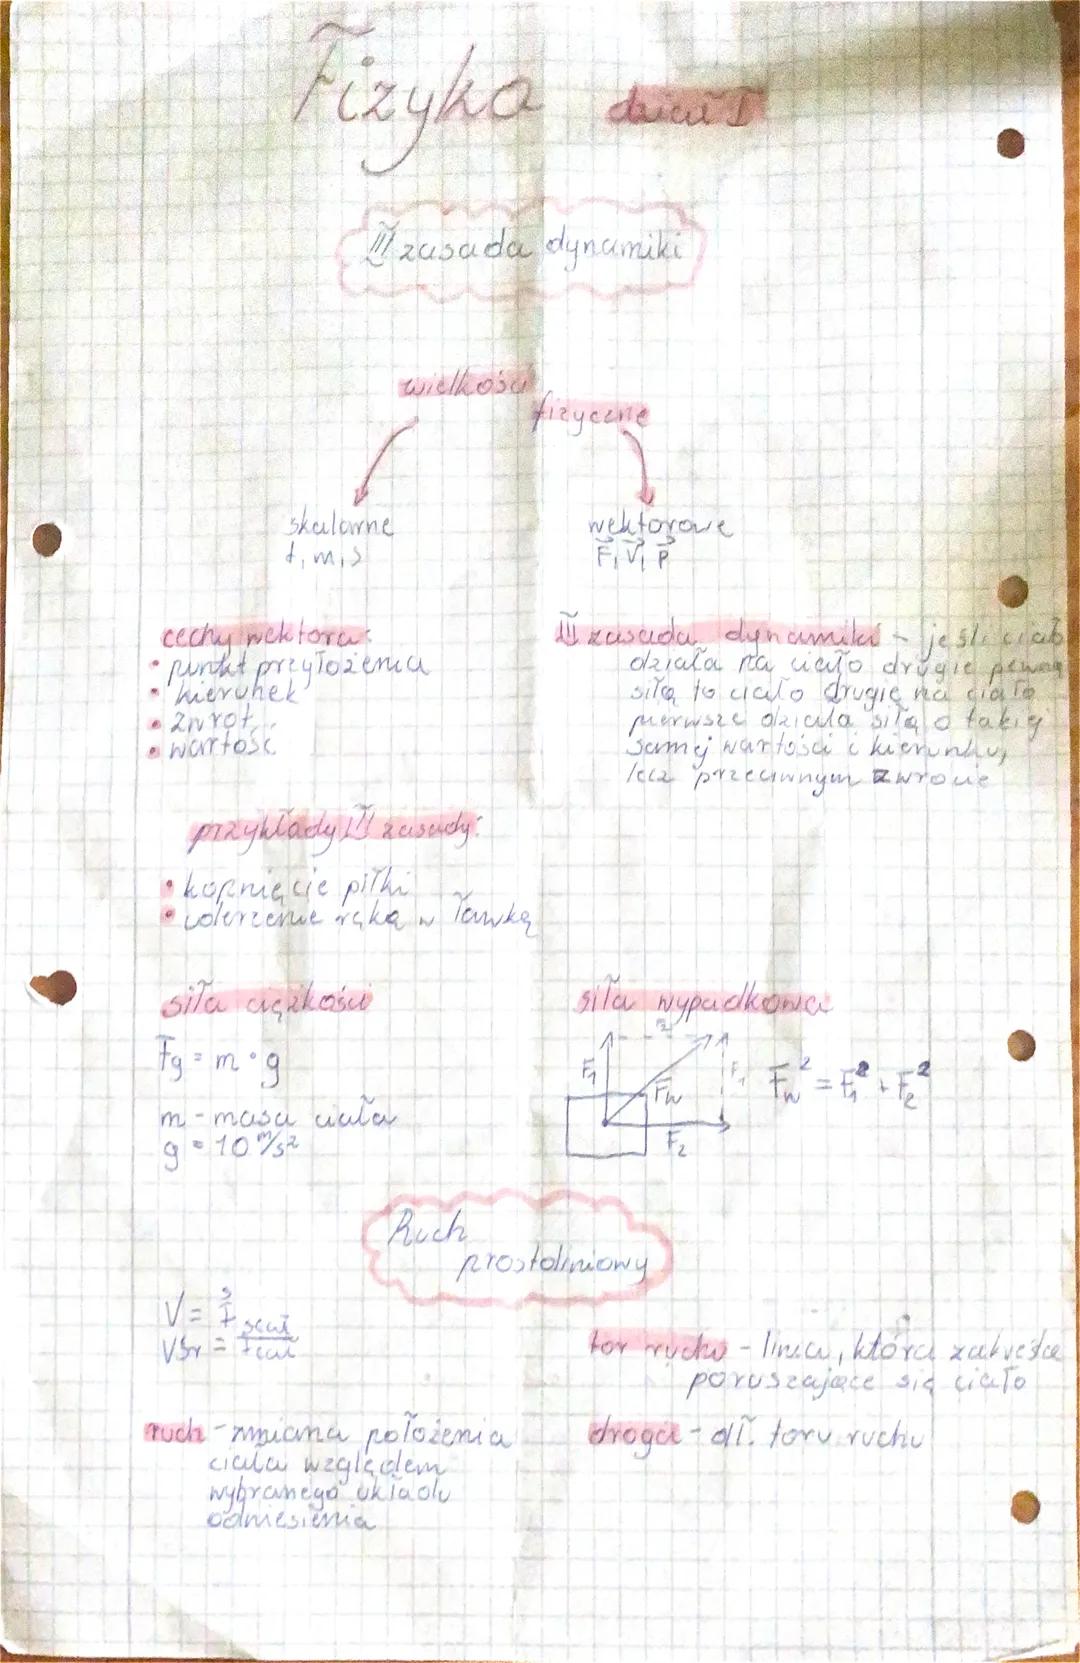 Fizyka dzień I
III zasada dynamiki
wielkości
fizyczne
skalarne
t, m, s
wektorowe
F⃗, V⃗, p⃗
cechy wektora:
• punkt przyłożenia
• kierunek
• zwrot
• wartość
III zasada dynamiki - jeśli ciało
działa na ciało drugie pewną
siłą to ciało drugie na ciało
pierwsze działa siłą o takiej
samej wartości i kierunku,
lecz przeciwnym zwrocie
przykłady III zasady:
• kopnięcie piłki
• uderzenie ręką w ławkę
siła ciężkości
Fg = m · g
m - masa ciała
g = 10 m/s²
siła wypadkowa
F₂
F₁ Fw F₁
F₂
Fw² = F₁² + F₂²
Ruch
prostoliniowy
V = s/t
Vśr = scał/tcał
tor ruchu - linia, którą zakreśla
poruszające się ciało
ruch - zmiana położenia
ciała względem
wybranego układu
odniesienia
droga - dł. toru ruchu